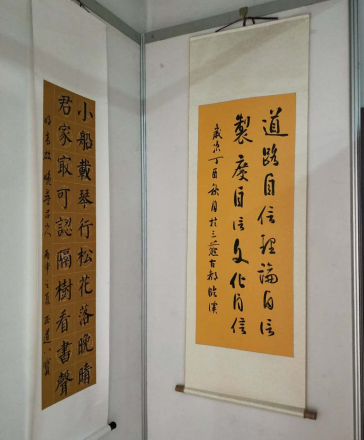 小船載琴行松花落晚晴
君家冣可認隔樹看書聲
道路自信理論自信
製度自信文化自信
歲次丁酉秋月於三燕古都